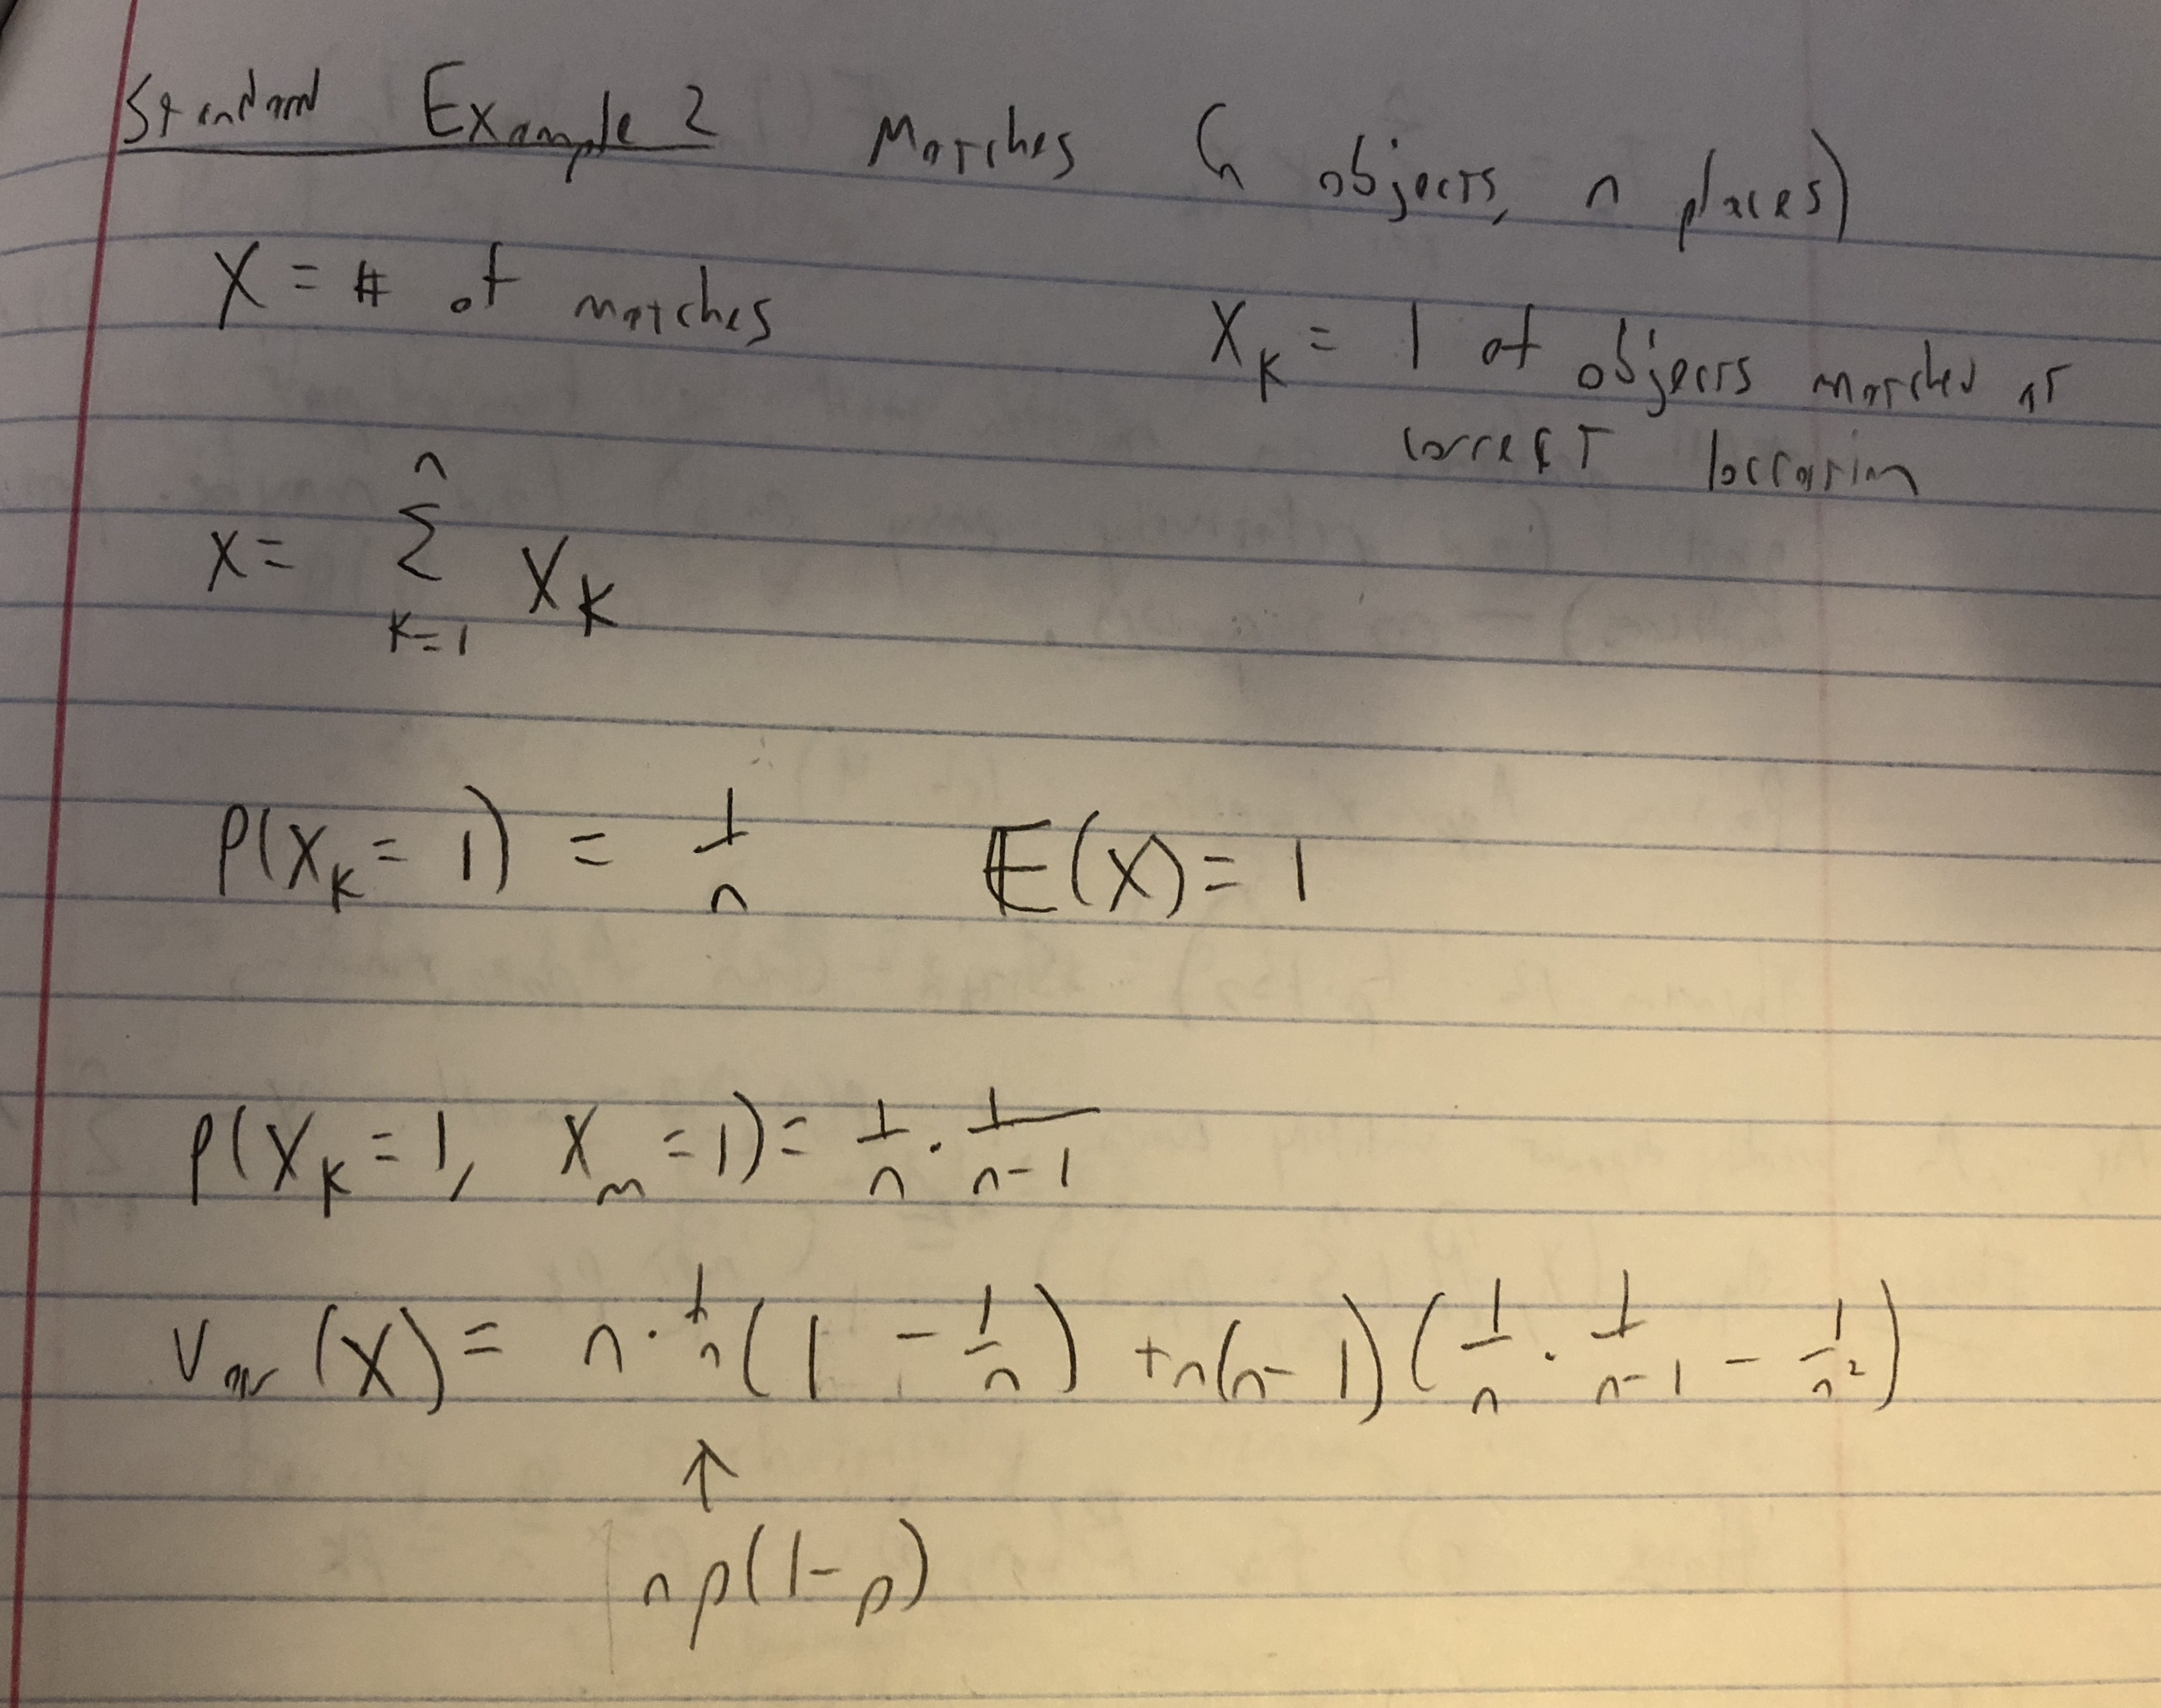 Standard Example 2 Matches (n objects, n places)
X = # of matches
X_K = 1 of objects matched at
correct location
X = \sum_{K=1}^{n} X_K
P(X_K = 1) = \frac{1}{n} 𝔼(X) = 1
P(X_K = 1, X_m = 1) = \frac{1}{n} \cdot \frac{1}{n-1}
Var(X) = n \cdot \frac{1}{n}(1 - \frac{1}{n}) + n(n-1)(\frac{1}{n} \cdot \frac{1}{n-1} - \frac{1}{n^2})
↑
np(1-p)